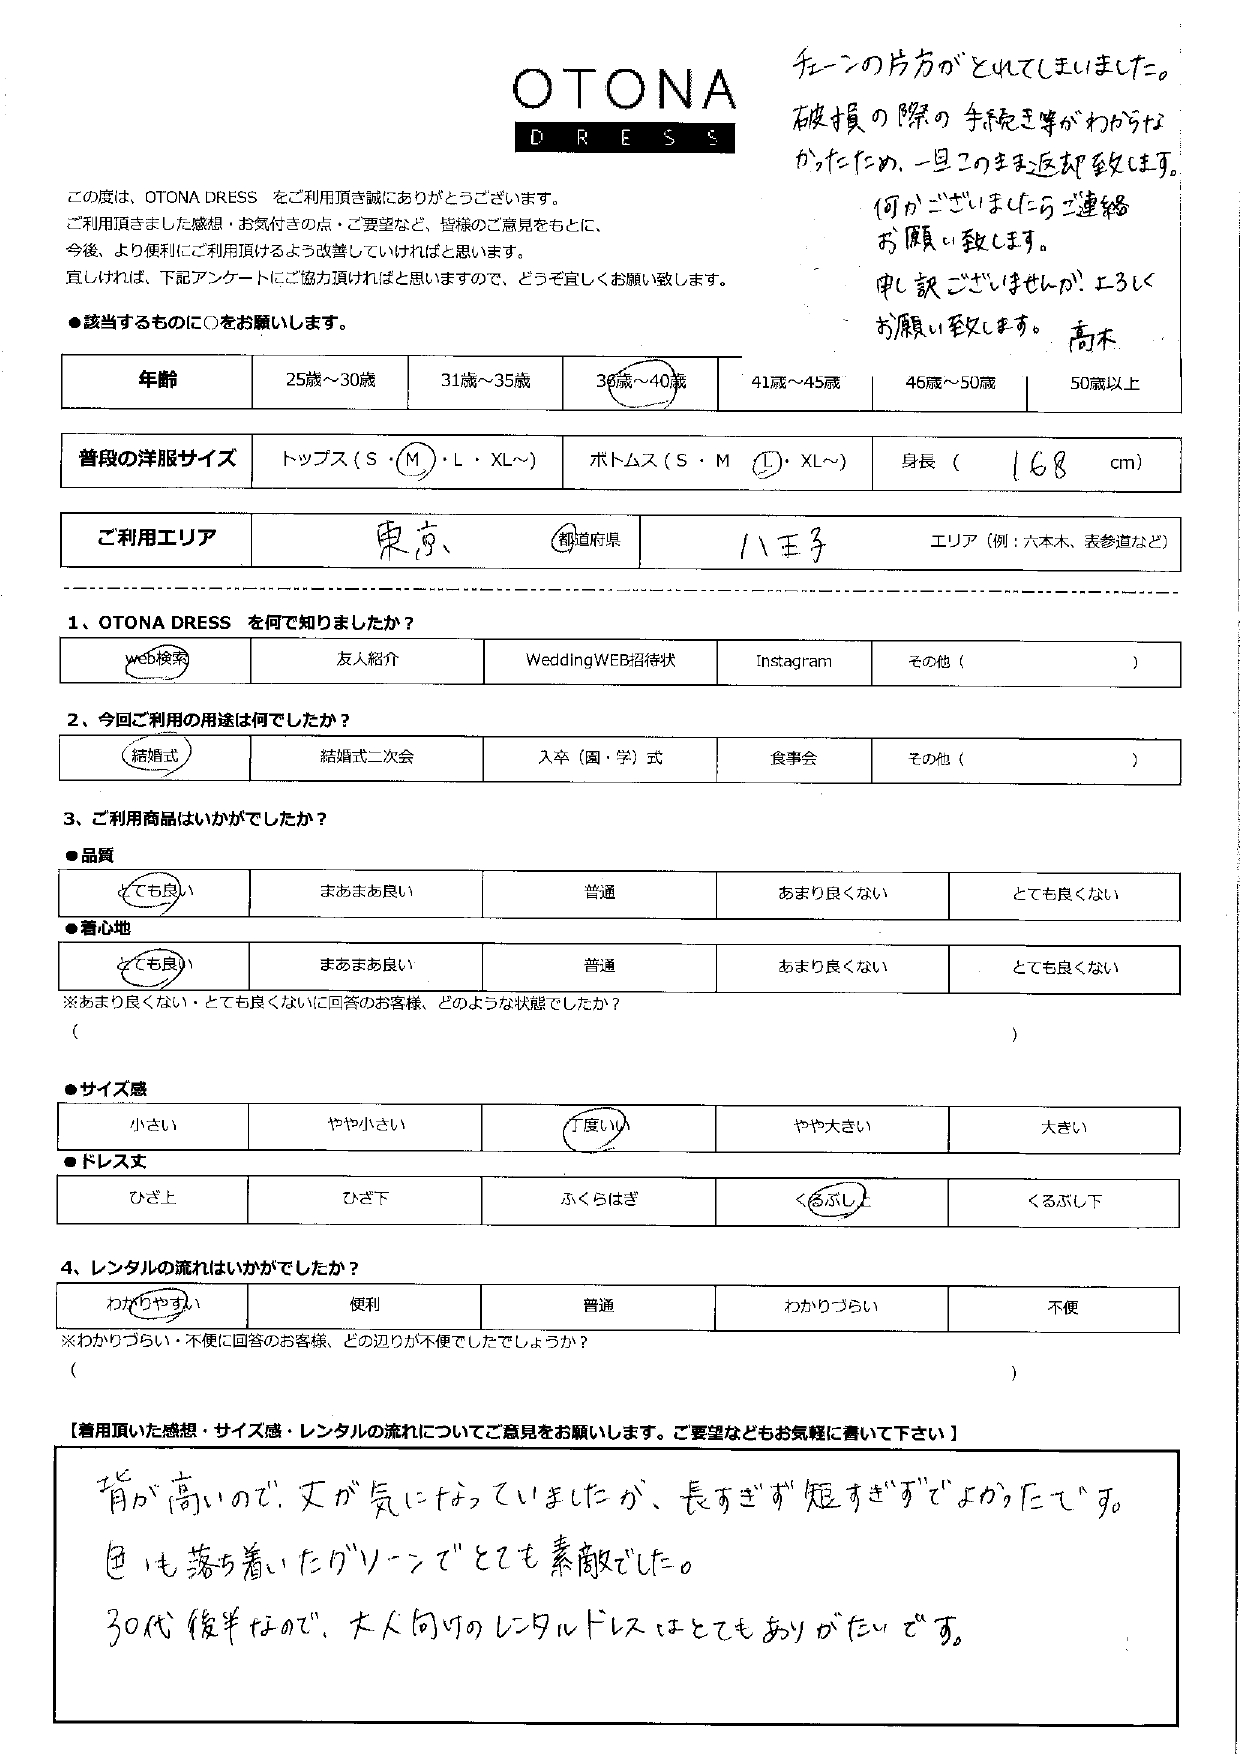 OTONA
DRESS
チェーンの片方がとれてしまいました。
破損の際の手続き等がわからな
かったため、一旦このまま返却致します。
何かございましたらご連絡
お願い致します。
申し訳ございませんが、よろしく
お願い致します。 高木
この度は、OTONA DRESS をご利用頂き誠にありがとうございます。
ご利用頂きました感想・お気付きの点・ご要望など、皆様のご意見をもとに、
今後、より便利にご利用頂けるよう改善していければと思います。
宜しければ、下記アンケートにご協力頂ければと思いますので、どうぞ宜しくお願い致します。
●該当するものに○をお願いします。
年齢 25歳～30歳 31歳～35歳 36歳～40歳 41歳～45歳 46歳～50歳 50歳以上
普段の洋服サイズ トップス ( S ・ M ・ L ・ XL～) ボトムス ( S ・ M ・ L ・ XL～) 身長 ( 168 cm)
ご利用エリア 東京 都道府県 八王子 エリア（例：六本木、表参道など）
1、OTONA DRESS を何で知りましたか？
web検索 友人紹介 WeddingWEB招待状 Instagram その他（ ）
2、今回ご利用の用途は何でしたか？
結婚式 結婚式二次会 入卒（園・学）式 食事会 その他（ ）
3、ご利用商品はいかがでしたか？
●品質
とても良い まあまあ良い 普通 あまり良くない とても良くない
●着心地
とても良い まあまあ良い 普通 あまり良くない とても良くない
※あまり良くない・とても良くないに回答のお客様、どのような状態でしたか？
（ ）
●サイズ感
小さい やや小さい 丁度いい やや大きい 大きい
●ドレス丈
ひざ上 ひざ下 ふくらはぎ くるぶし上 くるぶし下
4、レンタルの流れはいかがでしたか？
わかりやすい 便利 普通 わかりづらい 不便
※わかりづらい・不便に回答のお客様、どの辺りが不便でしたでしょうか？
（ ）
【着用頂いた感想・サイズ感・レンタルの流れについてご意見をお願いします。ご要望などもお気軽に書いて下さい】
背が高いので、丈が気になっていましたが、長すぎず短すぎずでよかったです。
色も落ち着いたグリーンでとても素敵でした。
30代後半なので、大人向けのレンタルドレスはとてもありがたいです。